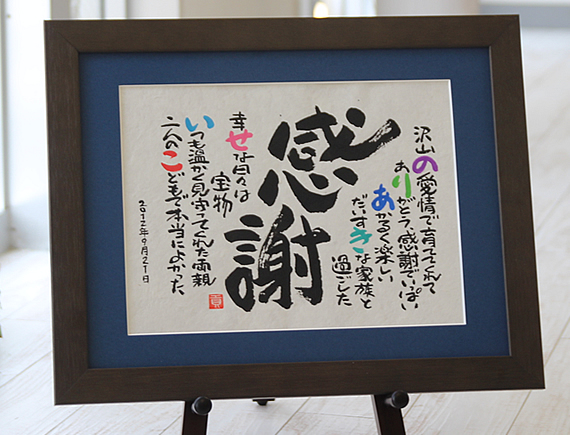 沢山の愛情で育ててくれて
ありがとう、感謝でいっぱい
あかるく楽しい
だいすきな家族と
過ごした
感謝
幸せな日々は
宝物
いつも温かく見守ってくれた両親
二人のこどもで本当によかった
2012年9月21日